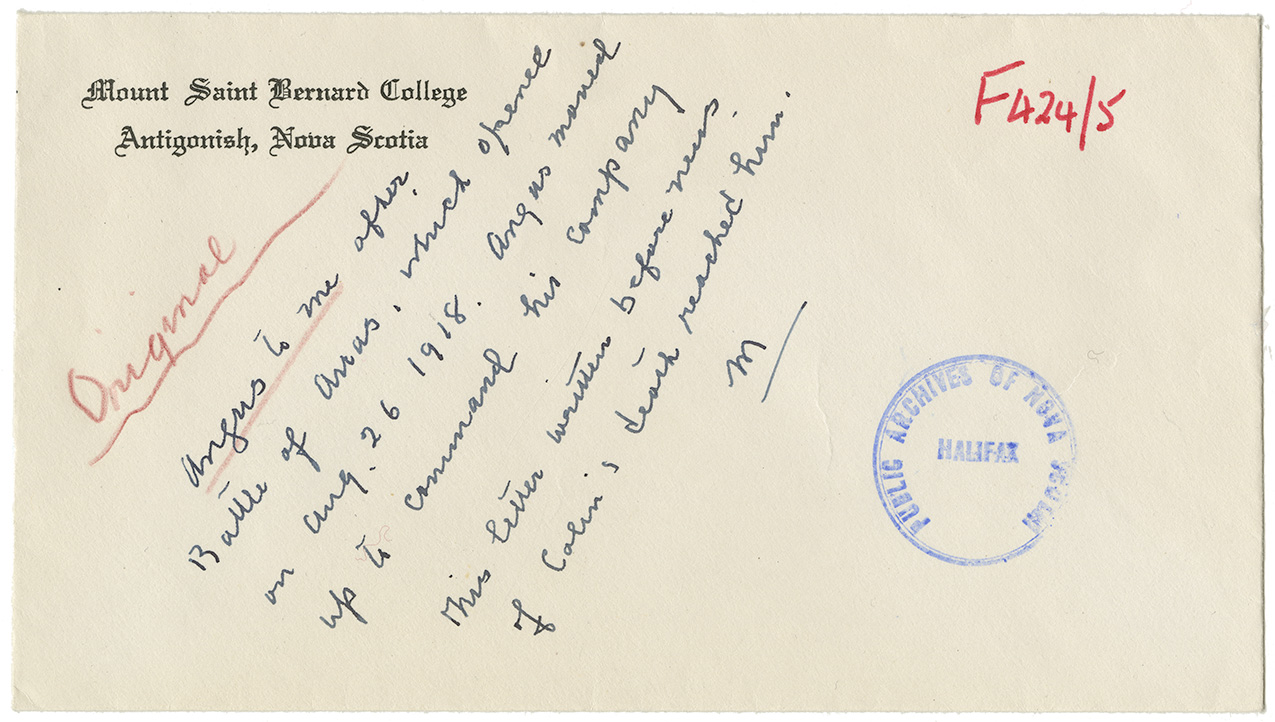 Mount Saint Bernard College
Antigonish, Nova Scotia
F424/5
Original
Angus to me after
Battle of Arras, which opened
on Aug. 26 1918. Angus moved
up to command his company
This letter written before news
of Colin's death reached him.
M
PUBLIC ARCHIVES OF NOVA SCOTIA
HALIFAX